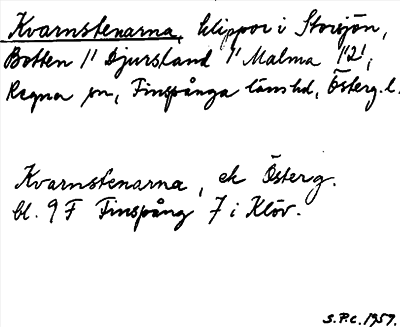 Kvarnstenarna, klippor i Storsjön,
Botten 1/1 Djursland 1/1 Malma 1/2 1,
Regna sn, Finspånga länshd, Österg. l.
Kvarnstenarna, ek Österg.
bl. 9 F Finspång 7 i Klöv.
S.P.C. 1957.